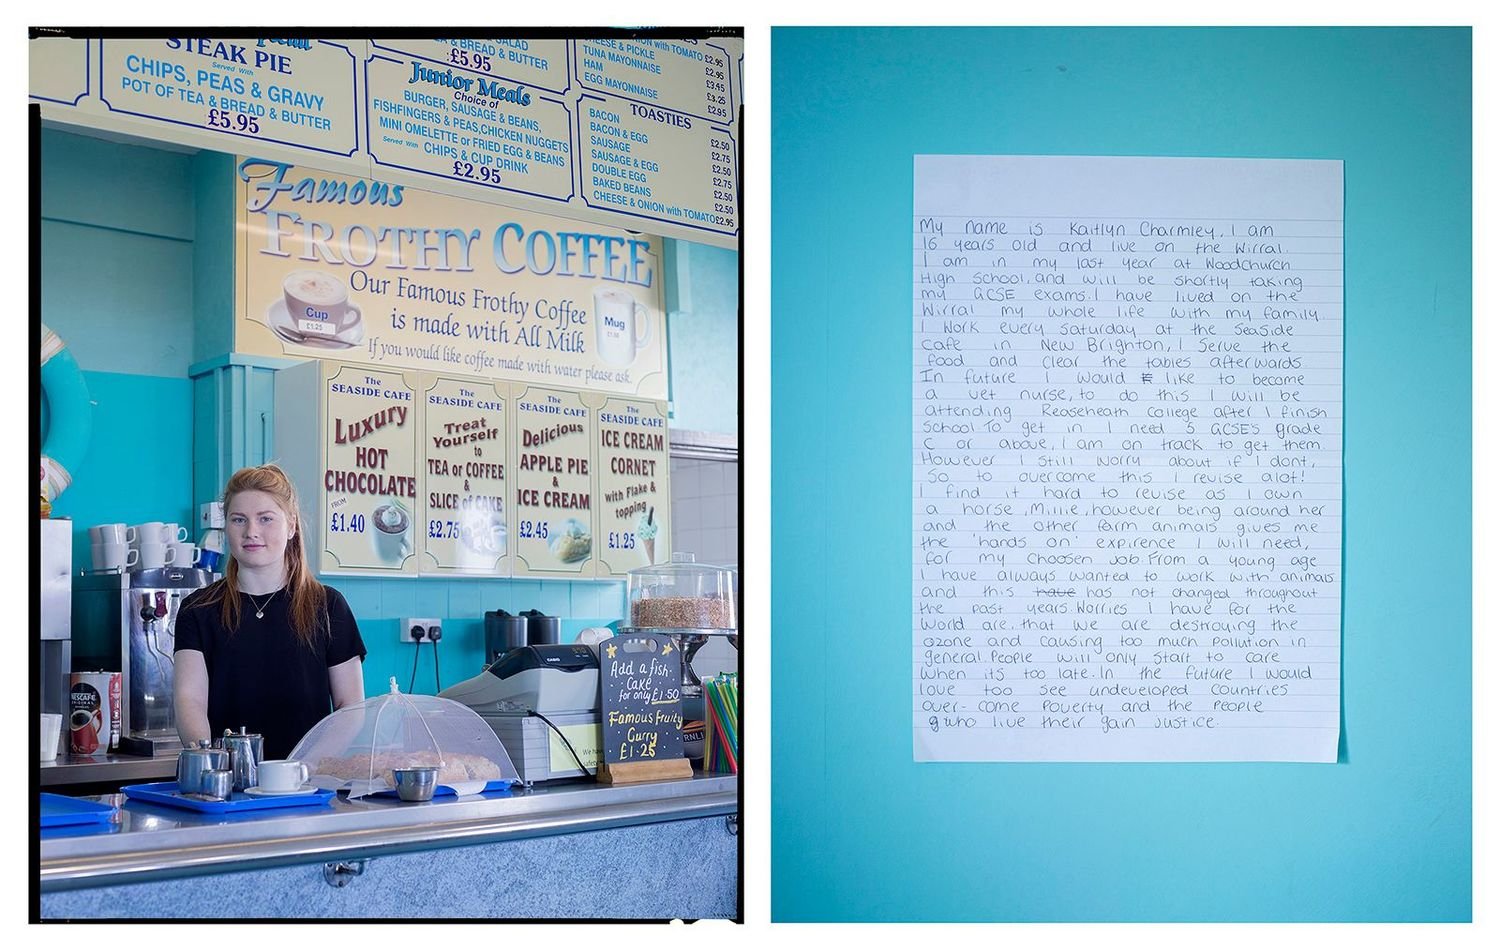 Special
STEAK PIE
Served With
CHIPS, PEAS & GRAVY
POT OF TEA & BREAD & BUTTER
£5.95
SALAD
& BREAD & BUTTER
£5.95
Junior Meals
Choice of
BURGER, SAUSAGE & BEANS,
FISHFINGERS & PEAS,CHICKEN NUGGETS
MINI OMELETTE or FRIED EGG & BEANS
Served With CHIPS & CUP DRINK
£2.95
ONION with TOMATO £2.95
CHEESE & PICKLE £2.95
TUNA MAYONNAISE £3.45
HAM £3.25
EGG MAYONNAISE £2.95
TOASTIES
BACON £2.50
BACON & EGG £2.75
SAUSAGE £2.50
SAUSAGE & EGG £2.75
DOUBLE EGG £2.50
BAKED BEANS £2.50
CHEESE & ONION with TOMATO £2.95
Famous
FROTHY COFFEE
Our Famous Frothy Coffee
is made with All Milk
If you would like coffee made with water please ask.
Cup
£1.25
Mug
The
SEASIDE CAFE
Luxury
HOT
CHOCOLATE
FROM
£1.40
The
SEASIDE CAFE
Treat
Yourself
to
TEA or COFFEE
&
SLICE of CAKE
£2.75
The
SEASIDE CAFE
Delicious
APPLE PIE
&
ICE CREAM
£2.45
The
SEASIDE CAFE
ICE CREAM
CORNET
with Flake &
topping
£1.25
NESCAFÉ
CASIO
Add a fish
cake
for only £1.50
Famous Fruity
Curry
£1.25
We have
My name is Kaitlyn Charmley, I am
16 years old and live on the Wirral.
I am in my last year at Woodchurch
High School, and will be shortly taking
my GCSE exams. I have lived on the
Wirral my whole life with my family.
I work every Saturday at the Seaside
cafe in New Brighton, I serve the
food and clear the tables afterwards.
In future I would like to become
a vet nurse, to do this I will be
attending Reaseheath college after I finish
school. To get in I need 5 GCSE's grade
C or above, I am on track to get them.
However I still worry about if I dont,
so to overcome this I revise alot!
I find it hard to revise as I own
a horse, Millie, however being around her
and the other farm animals gives me
the 'hands on' expirence I will need,
for my choosen job. From a young age
I have always wanted to work with animals
and this have has not changed throughout
the past years. Worries I have for the
world are, that we are destroying the
ozone and causing too much pollution in
general. People will only start to care
when its too late. In the future I would
love too see undeveloped countries
over-come poverty and the people
who live their gain justice.